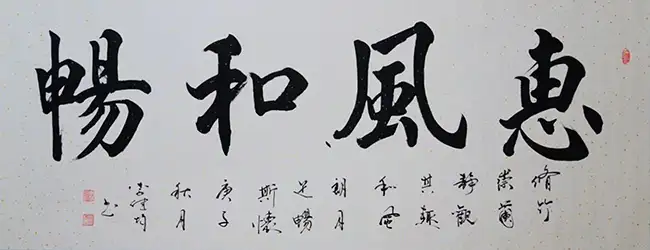 惠風和暢
脩竹
崇蘭
靜觀
其趣
和風
朗月
足暢
斯懷
庚子
秋月